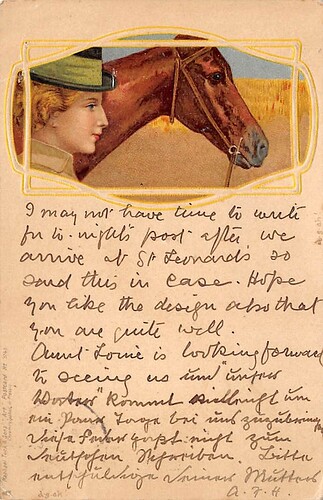 I may not have time to write
for to-night's post after we
arrive at St Leonards so
send this in case. Hope
you like the design also that
you are quite well.
Aunt Louie is looking forward
to seeing us und unser
kommt vielleicht um
ein Paar Tage bei uns zuzubringen
Diese Feder paßt nicht zum
Deutschen Schreiben. Bitte
entschuldige deiner Mutter
A. F. H